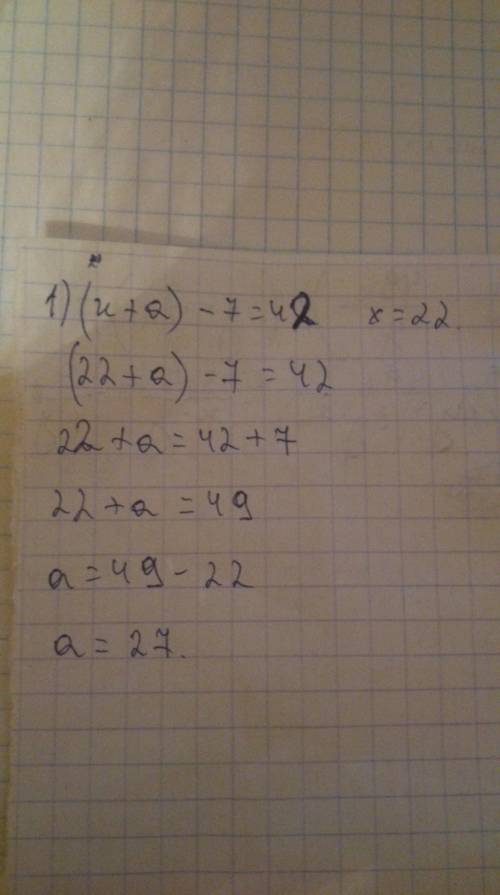 1) (x+a) - 7 = 42 x = 22.
(22 + a) - 7 = 42
22 + a = 42 + 7
22 + a = 49
a = 49 - 22
a = 27.